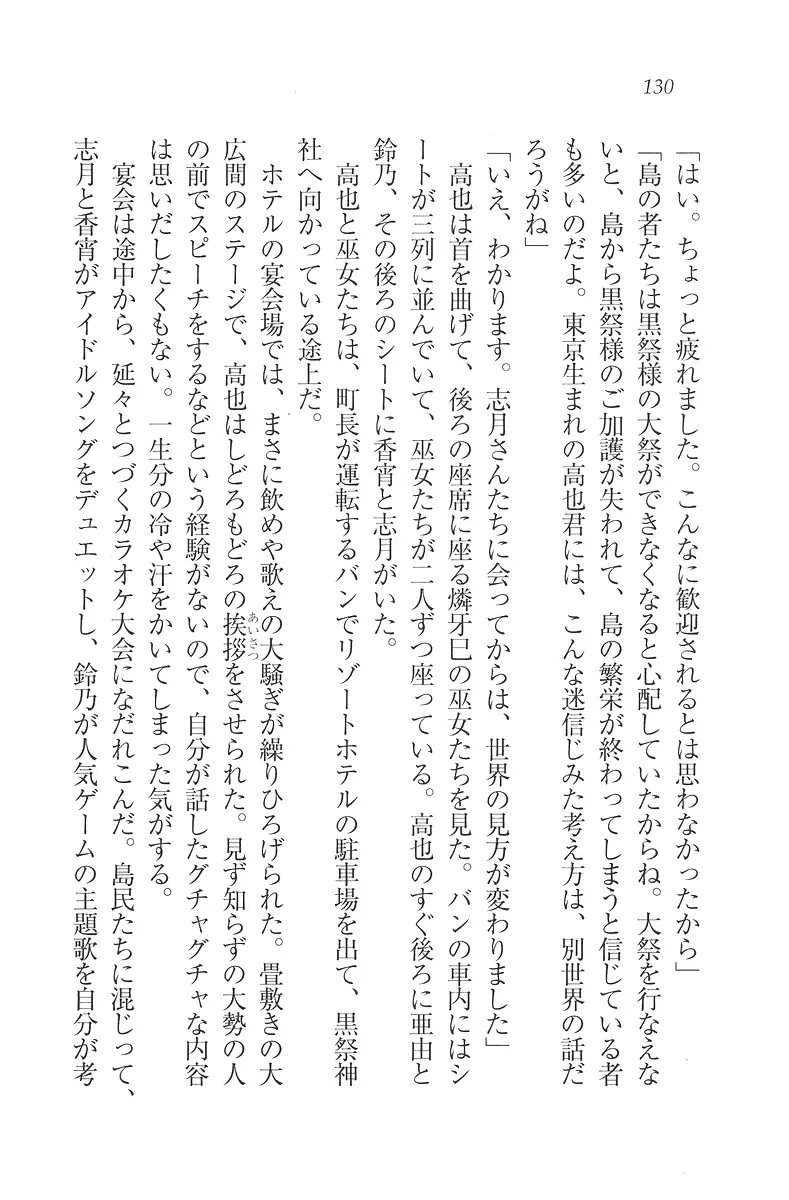 130
「はい。ちょっと疲れました。こんなに歓迎されるとは思わなかったから」
「島の者たちは黒祭様の大祭ができなくなると心配していたからね。大祭を行なえな
いと、島から黒祭様のご加護が失われて、島の繁栄が終わってしまうと信じている者
も多いのだよ。東京生まれの高也君には、こんな迷信じみた考え方は、別世界の話だ
ろうがね」
「いえ、わかります。志月さんたちに会ってからは、世界の見方が変わりました」
高也は首を曲げて、後ろの座席に座る燐牙巳の巫女たちを見た。バンの車内にはシ
ートが三列に並んでいて、巫女たちが二人ずつ座っている。高也のすぐ後ろに亜由と
鈴乃、その後ろのシートに香宵と志月がいた。
高也と巫女たちは、町長が運転するバンでリゾートホテルの駐車場を出て、黒祭神
社へ向かっている途上だ。
ホテルの宴会場では、まさに飲めや歌えの大騒ぎが繰りひろげられた。畳敷きの大
広間のステージで、高也はしどろもどろの挨拶をさせられた。見ず知らずの大勢の人
あいさつ
の前でスピーチをするなどという経験がないので、自分が話したグチャグチャな内容
は思いだしたくもない。一生分の冷や汗をかいてしまった気がする。
宴会は途中から、延々とつづくカラオケ大会になだれこんだ。島民たちに混じって、
志月と香宵がアイドルソングをデュエットし、鈴乃が人気ゲームの主題歌を自分が考